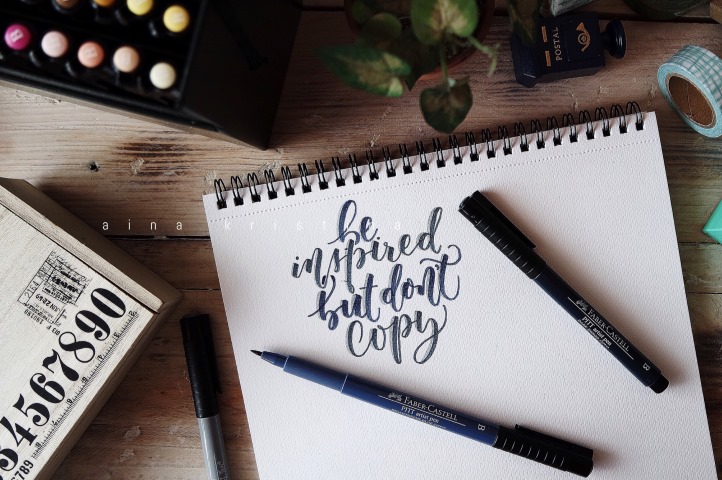 POSTAL
aina krist
be
inspired
but don't
copy
FABER-CASTELL
PITT artist pen
B
FABER-CASTELL
PITT artist pen
B
34567890
789